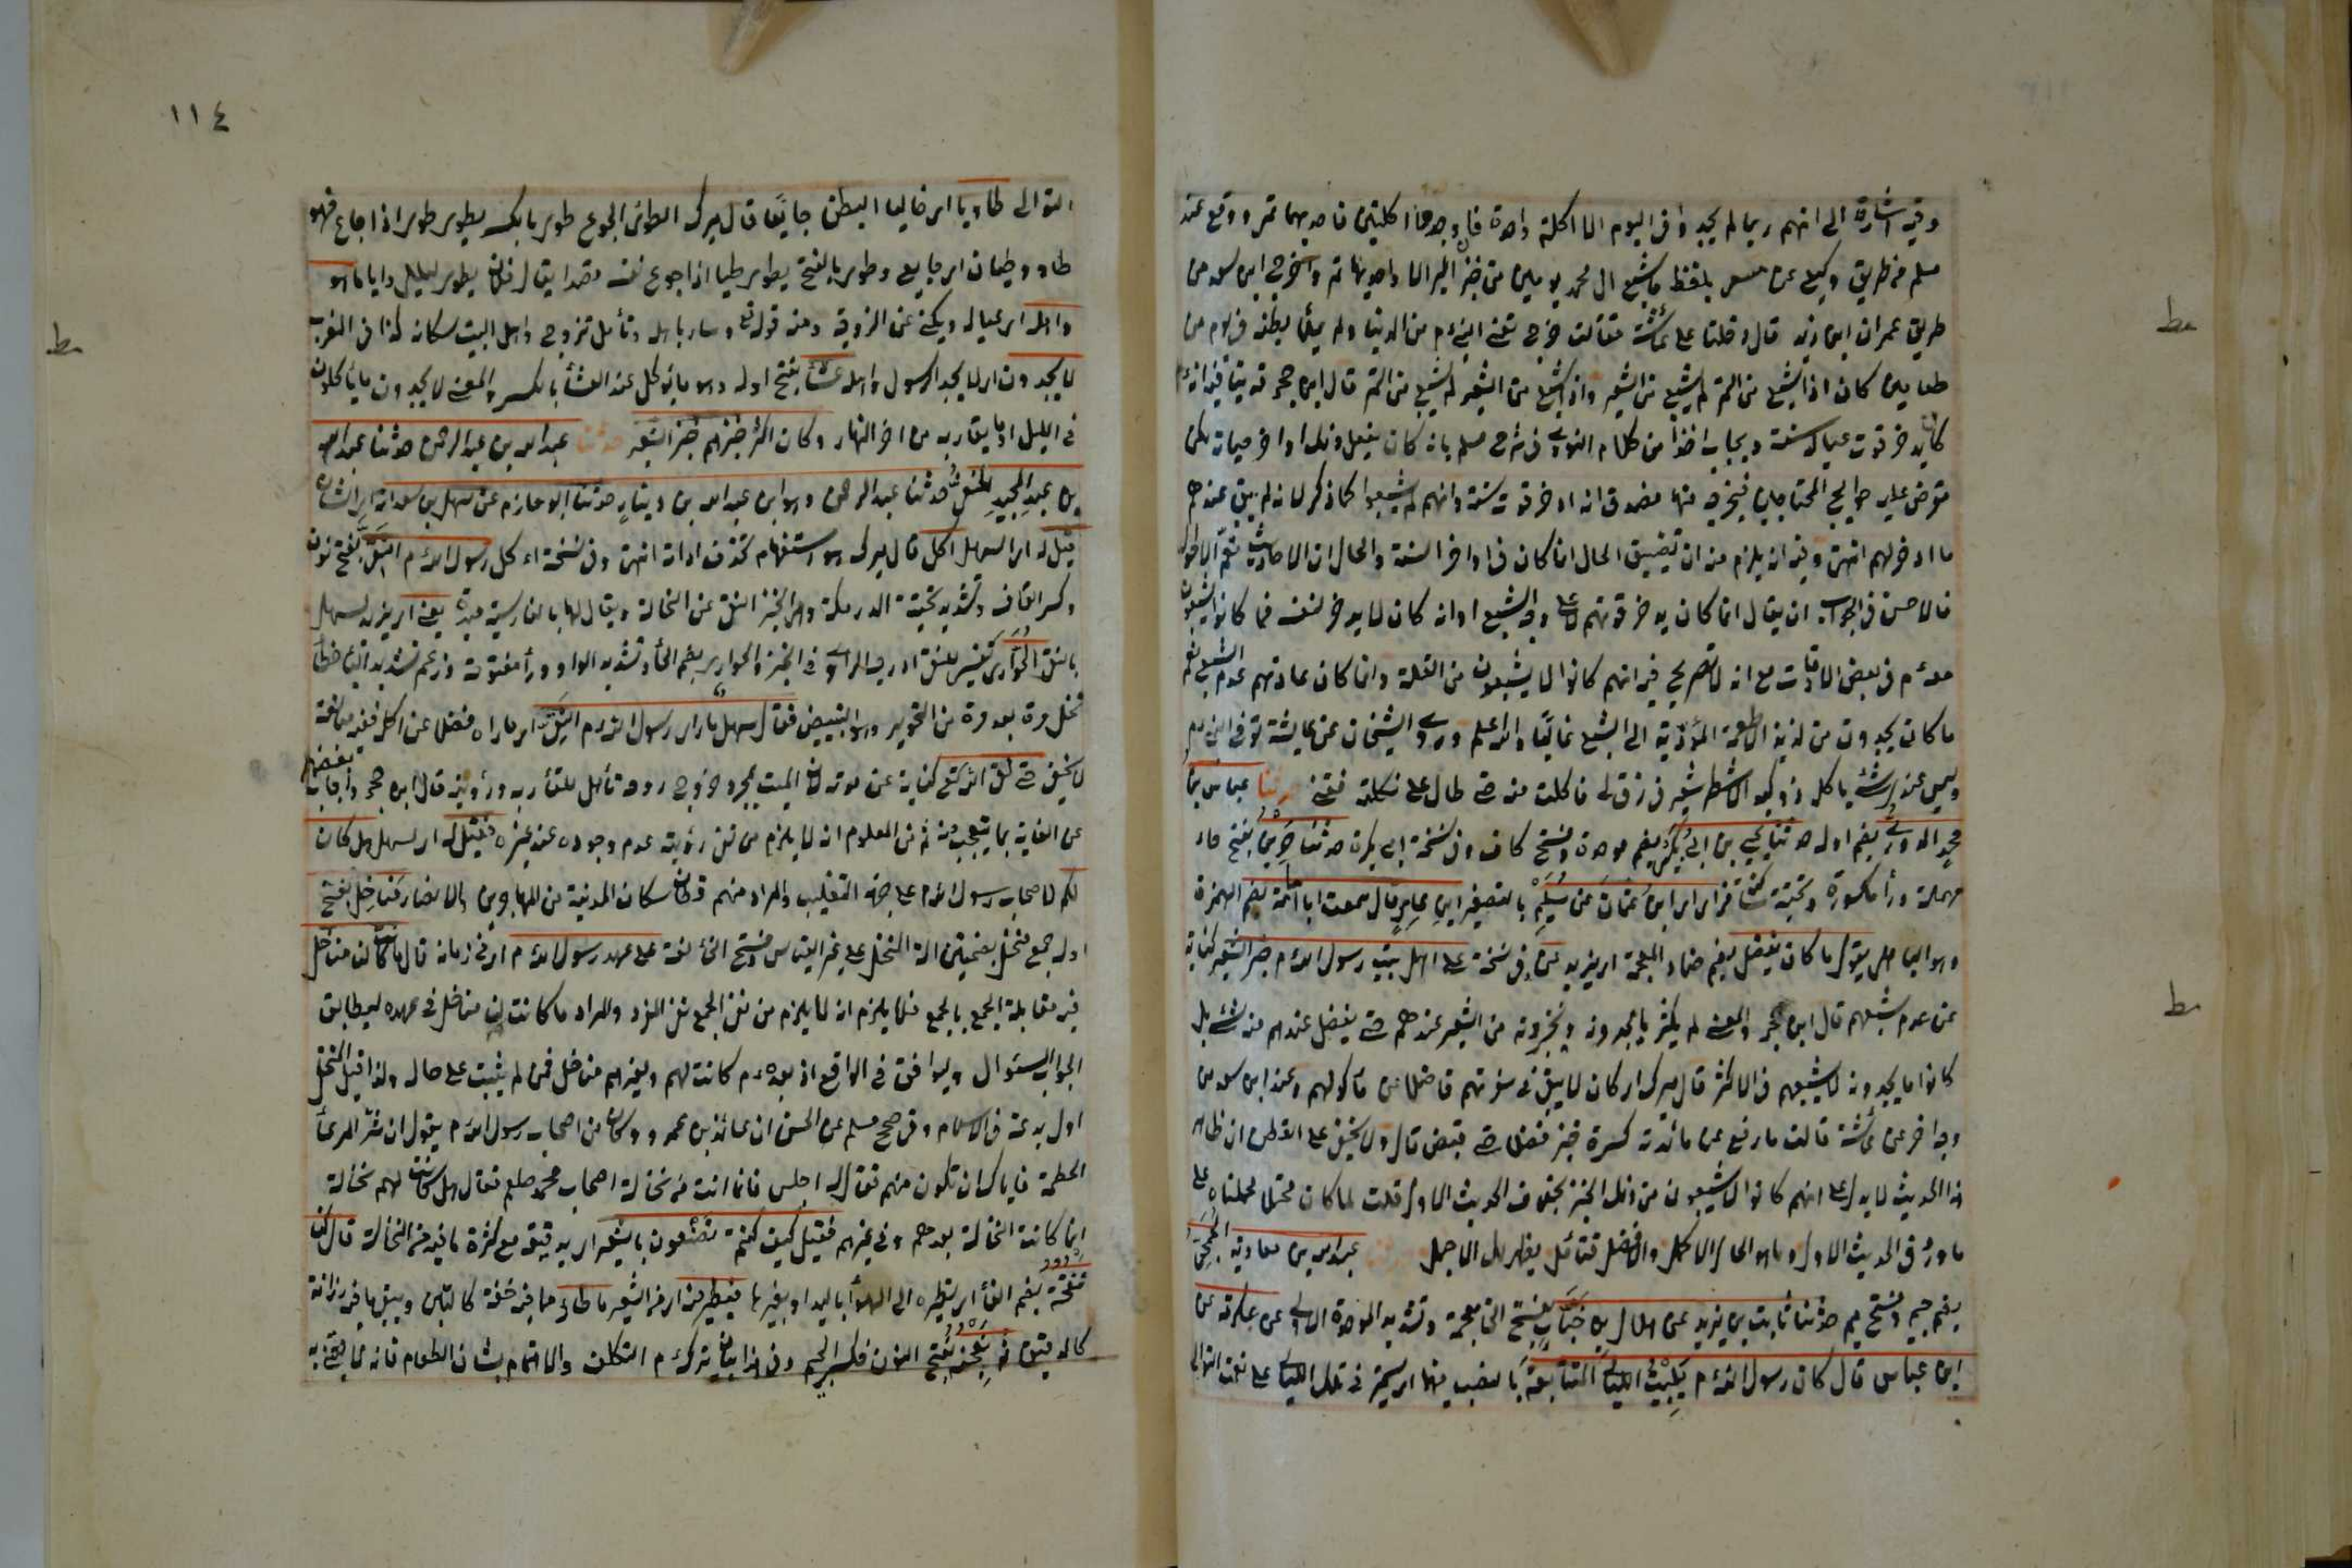 وفيه اشارة الى انهم ربما لم يجدوا في اليوم الا اكلة واحدة فان وجدوها اكلتين فاحديهما تمر ووقع عند
مسلم من طريق وكيع عن مسعر بلفظ ما شبع ال محمد يومين من خبز البر الا واحديهما تمر واخرج ابن سعد من
طريق عمران ابن زيد قال دخلنا على عائشة فقالت خرج تعني النبي ءم من الدنيا ولم يملأ بطنه في يوم من
طعامين كان اذا شبع من التمر لم يشبع من الشعير واذا شبع من الشعير لم يشبع من التمر قال ابن حجر قد ينافيه انه ءم
كان يدخر قوت عياله سنة ويجاب اخذا من كلام النووي في شرح مسلم بانه كان يفعل ذلك اواخر حياته لكن
تعرض عليه حوايج المحتاجين فيخرجه فيها فصدق انه ادخر قوت سنة وانهم لم يشبعوا كما ذكر لانه لم يبق عندهم
ما ادخر لهم انتهى وفيه انه يلزم منه ان تضييق الحال انما كان في اواخر السنة والحال ان الاحاديث تعم الاحوال
فالاحسن في الجواب ان يقال انما كان يدخر قوتهم لا على وجه الشبع او انه كان لا يدخر لنفسه فما كانوا يشبعون
معه ءم في بعض الاوقات مع انه لا تصريح فيه انهم كانوا لا يشبعون من القلة وانما كان عادتهم عدم الشبع نعم
ما كان يجدون من لذيذ الاطعمة المؤدية الى الشبع غالبا والله اعلم وروى الشيخان عن عايشة توفي النبي ءم
وليس عندي شئ ياكله ذو كبد الا شطر شعير في رف لي فاكلت منه حتى طال علي فكلته ففني حدثنا عباس بن
محمد الدوري بضم اوله حدثنا يحيى بن ابي بكير بضم موحدة وفتح كاف وفي نسخة ابي بكرة حدثنا حريز بفتح حاء
مهملة وراء مكسورة وتحتية ابن عثمان عن سليم بالتصغير ابن عامر قال سمعت ابا امامة بضم الهمزة
وهو الباهلي يقول ما كان يفضل بضم ضاد المعجمة اي يزيد عن وفي نسخة على اهل بيت رسول الله ءم خبز الشعير كناية
عن عدم شبعهم قال ابن حجر والمعنى لم يكثر ما يجدونه ويخبزونه من الشعير عندهم حتى يفضل عندهم منه شئ بل
كانوا ما يجدونه لا يشبعهم في الاكثر قال ميرك اي كان لا يبقى في سفرتهم فاضلا عن مأكولهم وعند ابن سعد من
وجه اخر عن عائشة قالت ما رفع عن مائدته كسرة خبز فضلا حتى قبض قال ولا يخفى على الفطن ان ظاهر
هذا الحديث لا يدل على انهم كانوا لا يشبعون من ذلك الخبز بخلاف الحديث الاول قلت لما كان محتملا حملناه على
ما ورد في الحديث الاول وما هو الحال الاكمل والافضل فتأمل يظهر لك الاجمل عبد الله بن معاوية الجمحي
بضم جيم وفتح ميم حدثنا ثابت بن يزيد عن هلال بن خباب بفتح الخا معجمة وتشديد الموحدة الاولى عن عكرمة عن
ابن عباس قال كان رسول الله ءم يبيت الليالي المتتابعة بالنصب فيهما اي يستمر في تلك الليالي على نعت التوالي
١١٤
التوالي طاويا اي خاليا البطن جايعا قال ميرك الطوى الجوع طوي بالكسر يطوي طوى اذا جاع فهو
طاو وطيان اي جايع وطوى بالفتح يطوي طيا اذا جوع نفسه قصدا يقال فلان يطوي ليالي واياما هو
واهله اي عياله ويكنى عن الزوجة ومنه قوله تعالى وسار باهله وتأهل تزوج واهل البيت سكانه كذا في المغرب
لا يجدون اي لا يجد الرسول واهله عشاء بفتح اوله وهو ما يؤكل عند العشأ بالكسر والمعنى لا يجدون ما ياكلونه
في الليل او ما يقاربه من اخر النهار وكان اكثر خبزهم خبز الشعير حدثنا عبد الله بن عبد الرحمن حدثنا عبيد الله
بن عبد المجيد الحنفي حدثنا عبد الرحمن وهو ابن عبد الله بن دينار حدثنا ابو حازم عن سهل بن سعد انه اي الشان
قيل له اي لسهل اكل قال ميرك هو استفهام بحذف اداته انتهى وفي نسخة اء كل رسول الله ءم النقي بفتح نون
وكسر القاف وتشديد تحتية الدرمكة وهو الخبز النقي عن النخالة ويقال لها بالفارسية ميدة يعني اي يريد سهل
بالنقي الحواري تفسير للنقي ادرجه الراوي في الخبز والحواري بضم الحأ وتشديد الواو وراء مفتوحة وزعم تشديد اليأ خطأ
نخل مرة بعد مرة من التحوير وهو التبييض فقال سهل ما راى رسول الله ءم النقي اي ما راه فضلا عن اكله ففيه مبالغة
لا يخفى حتى لقي الله تعالى كناية عن موته لان الميت بمجرد خروج روحه تأهل للقأ ربه ورؤيته قال ابن حجر واجاب بعضهم
عن الغاية بما يتعجب منه ثم من المعلوم انه لا يلزم من نفي رؤيته عدم وجوده عند غيره فقيل له اي لسهل هل كان
لكم لاصحاب رسول الله ءم على جهة التغليب والمراد منهم سكان المدينة من المهاجرين والانصار مناخل بفتح
اوله جمع منخل بضمتين الة النخل على غير القياس وفتح الخاء لغة على عهد رسول الله ءم اي في زمانه قال ما كانت لنا مناخل
فيه مقابلة الجمع بالجمع فلا يلزم انه لا يلزم من نفي الجمع نفي المفرد والمراد ما كانت لنا مناخل في عهده ليطابق
الجواب السؤال ويوافق في الواقع اذ بعده ءم كانت لهم ولغيرهم مناخل فمن لم يثبت على حاله ولذا قيل المنخل
اول بدعة في الاسلام وفي صحيح مسلم عن الحسن ان عائذ بن عمرو وكان من اصحاب رسول الله ءم يقول ان شر الرعاء
الحطمة فاياك ان تكون منهم فقال له اجلس فانما انت من نخالة اصحاب محمد صلعم فقال هل كانت لهم نخالة
انما كانت النخالة بعدهم وفي غيرهم فقيل كيف كنتم تصنعون بالشعير اي بدقيقه مع كثرة ما فيه من النخالة قال كنا
ننفخه بضم الفاء اي نطيره الى الهوأ باليد او بغيرها فيطير منه اي من الشعير ما طار مما فيه خفة كالتبن ويبقى ما فيه رزانة
كالدقيق ثم نعجنه بفتح النون فكسر الجيم وفي هذا بيان تركه ءم التكلف والاهتمام بشان الطعام فانه لا يعتني به